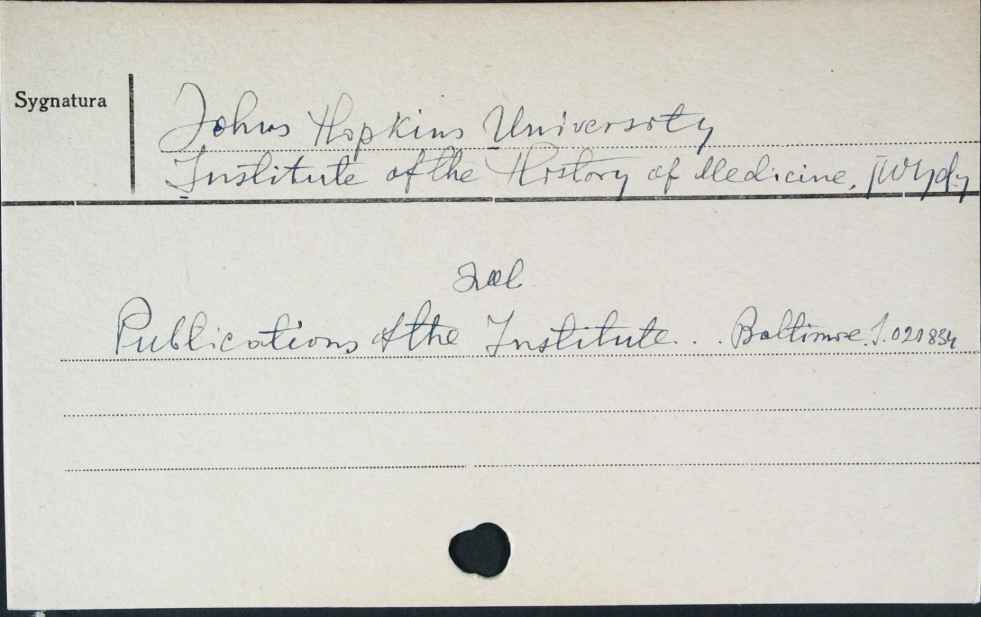 Sygnatura
Johns Hopkins University
Institute of the History of Medicine. [Wyd.]
zob
Publications of the Institute... Baltimore. J.020834